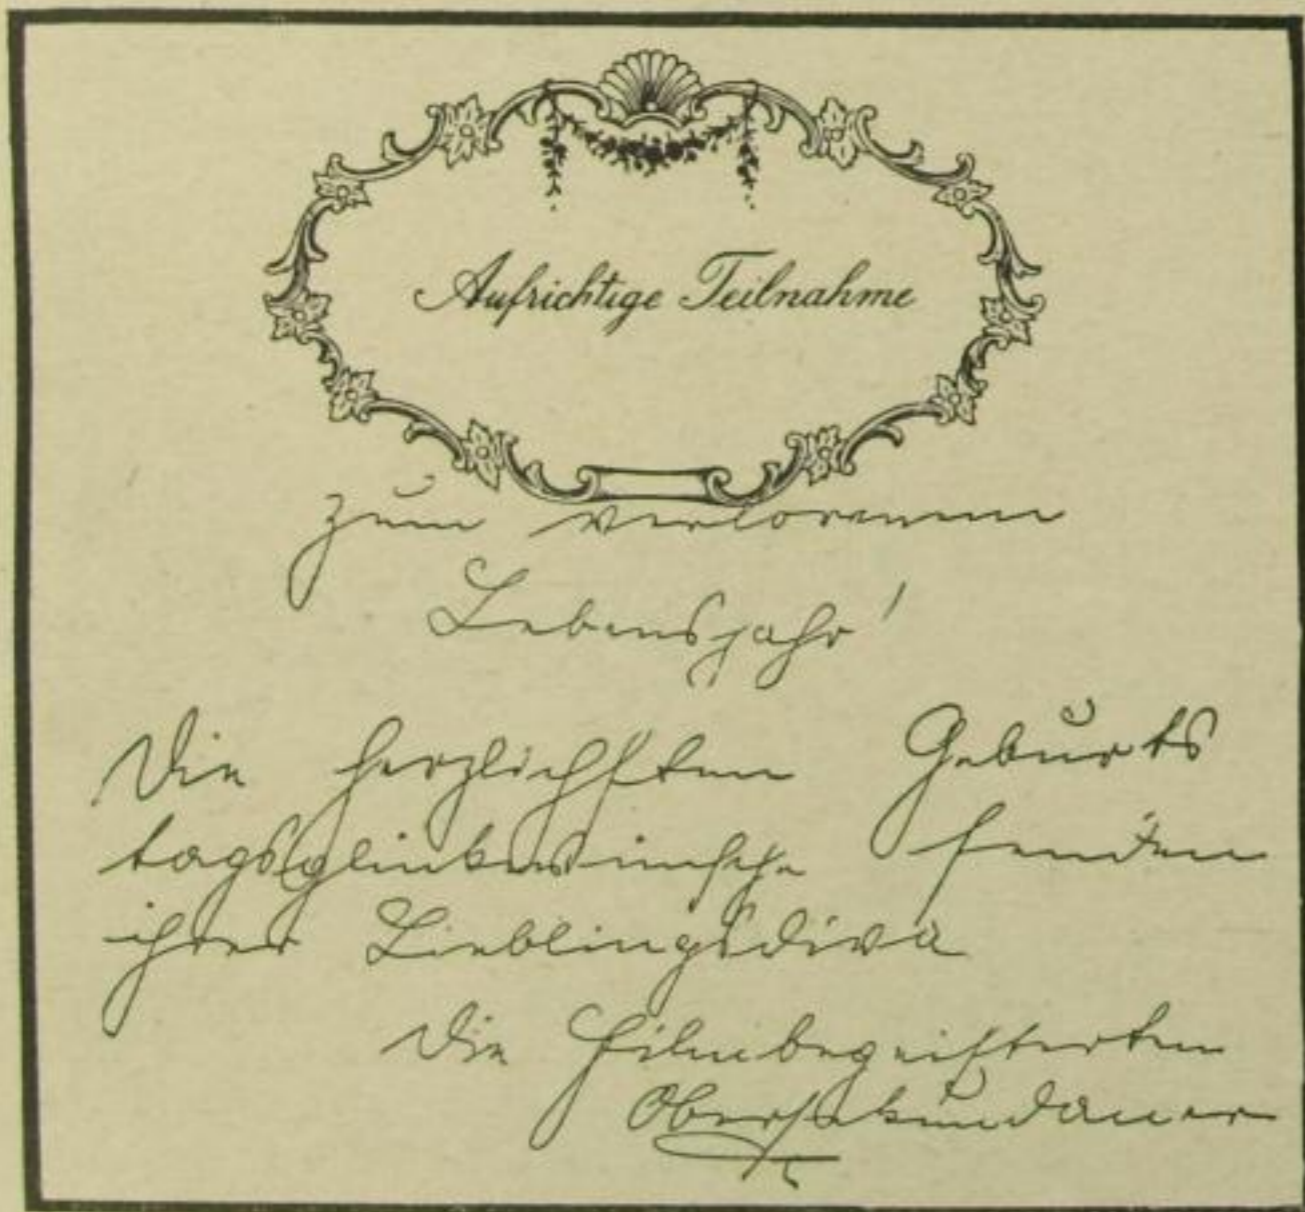 Aufrichtige Teilnahme
zum verlorenen
Lebensjahr!
Die herzlichsten Geburts
tagsglückwünsche senden
ihrer Lieblingsdiva
Die filmbegeisterten
Obersekundaner